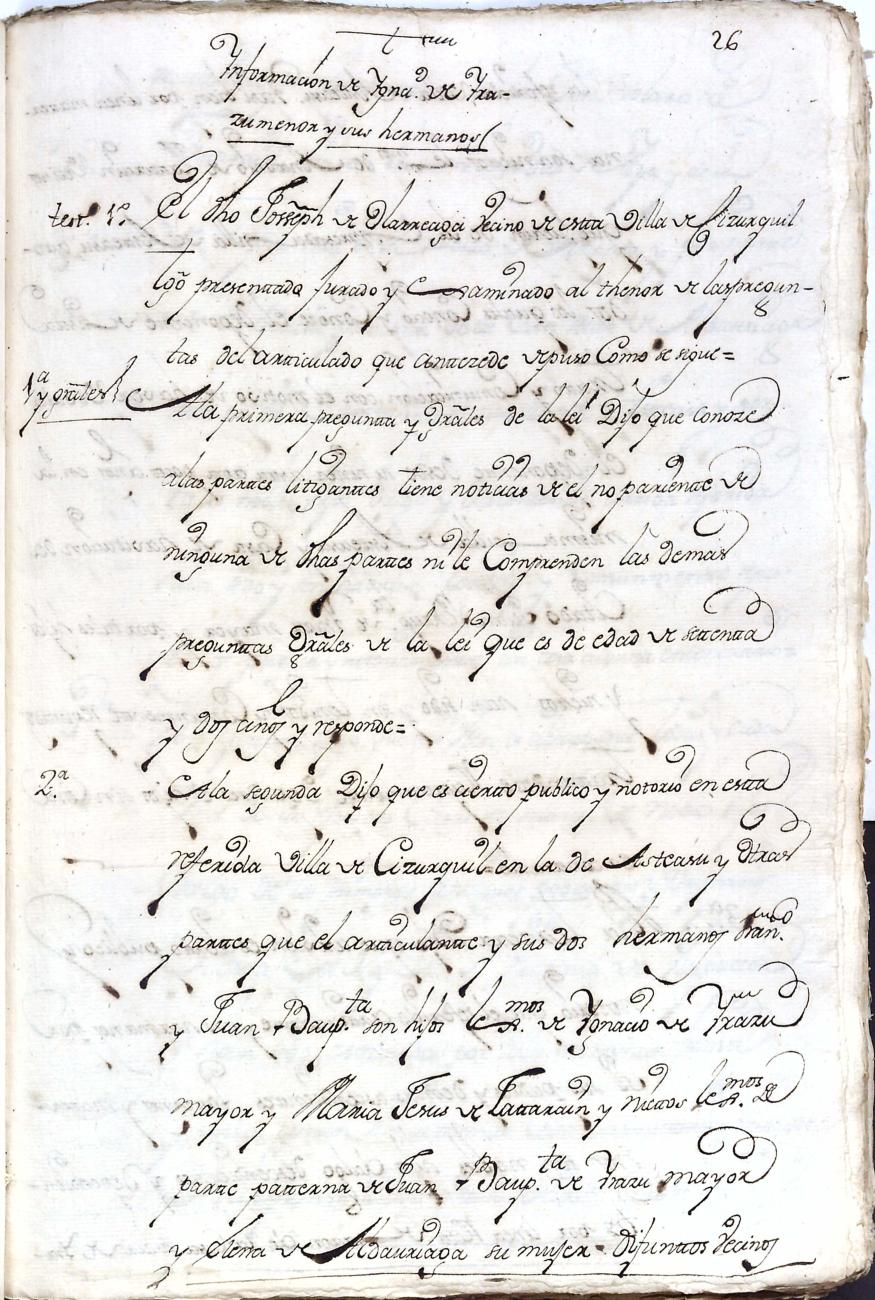 26
Informacion de Ignº. de Yra-
zu menor y sus hermanos
test. 1º. El dho Joseph de Olarreaga vecino de estta Villa de Cizurquil
tgō presenttado Jurado y Examinado al thenor de las pregun-
tas del articulado que anttezede depuso Como se sigue=
1ª y grāles A la primera pregunta y Grāles de la lei Dijo que conoze
a las parttes litigantes tiene noticias de el no parientte de
ninguna de dhas parttes ni le Comprenden las demas
preguntas Grāles de la lei que es de edad de settentta
y dos años y responde=
2ª A la segunda Dijo que es ciertto publico y nottorio en estta
referida Villa de Cizurquil en la de Asteasu y Otras
parttes que el articulantte y sus dos hermanos Franco.
y Juan Baup.ta son hijos lexmos. de Ygnacio de Yrazu
mayor y Maria Jesus de Lattarain y niettos lexmos. de
partte patterna de Juan Baup.ta de Yrazu mayor
y Elena de Aldauriaga su mujer difunttos vecinos